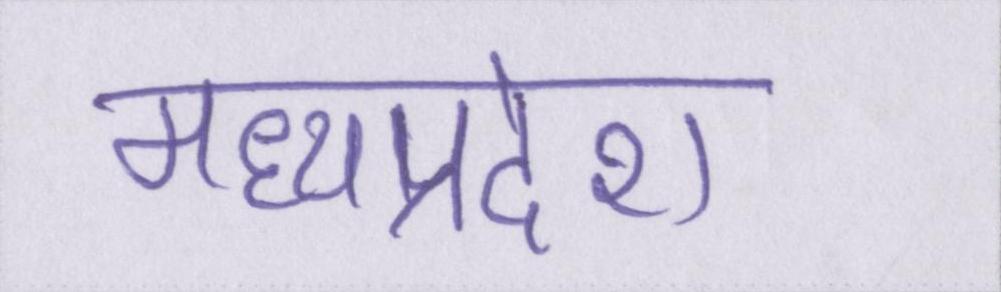 मध्यप्रदेश